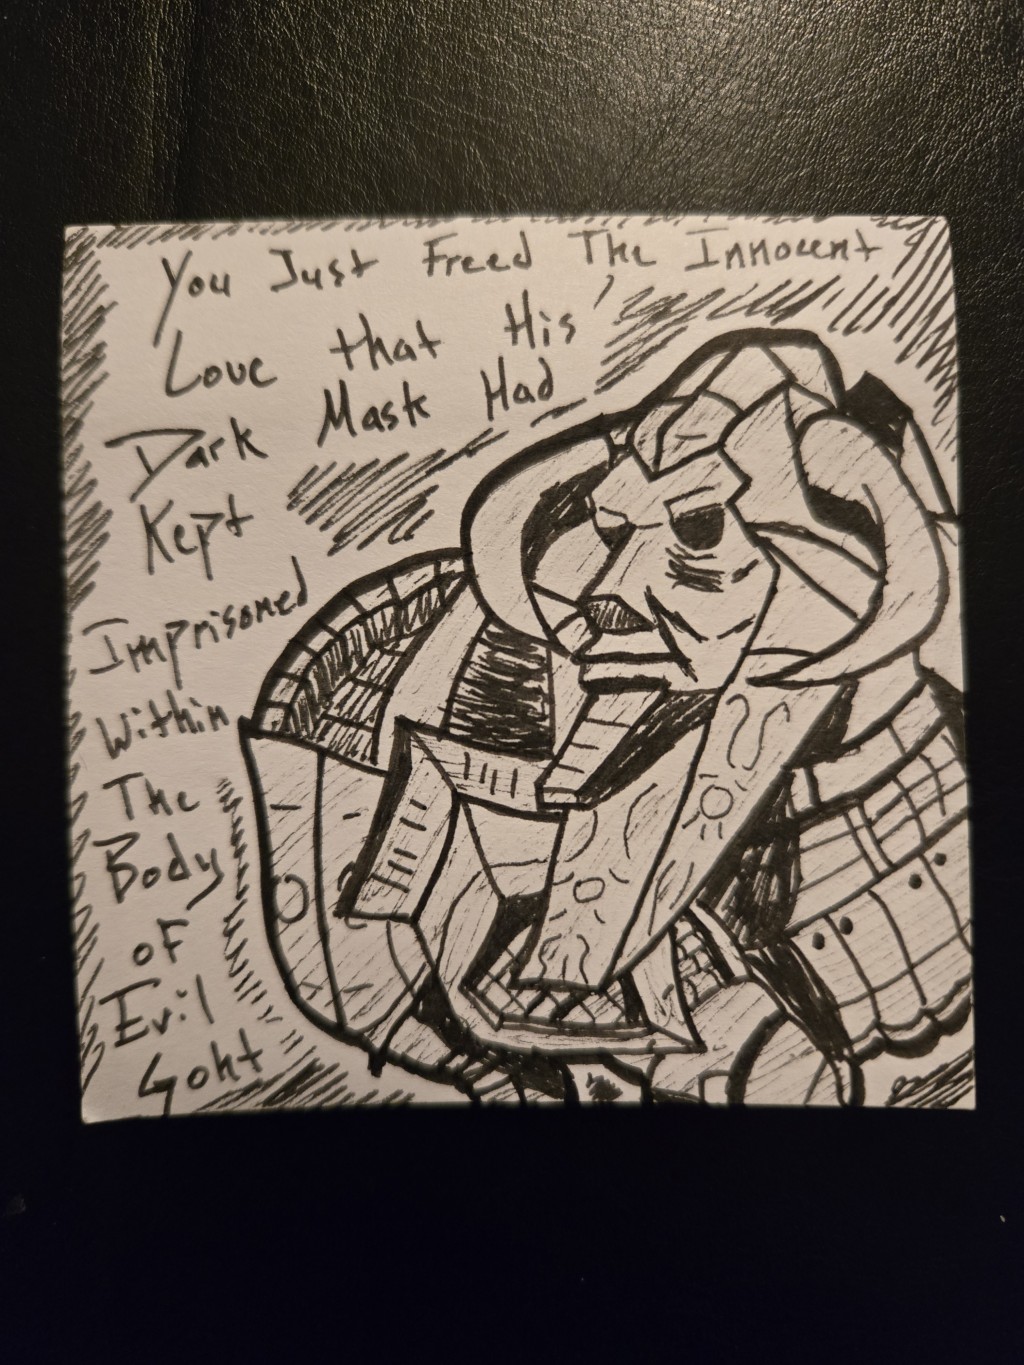 You Just Freed The Innocent
Love that His
Dark Mask Had
Kept
Imprisoned
Within
The
Body
of
Evil
Goht